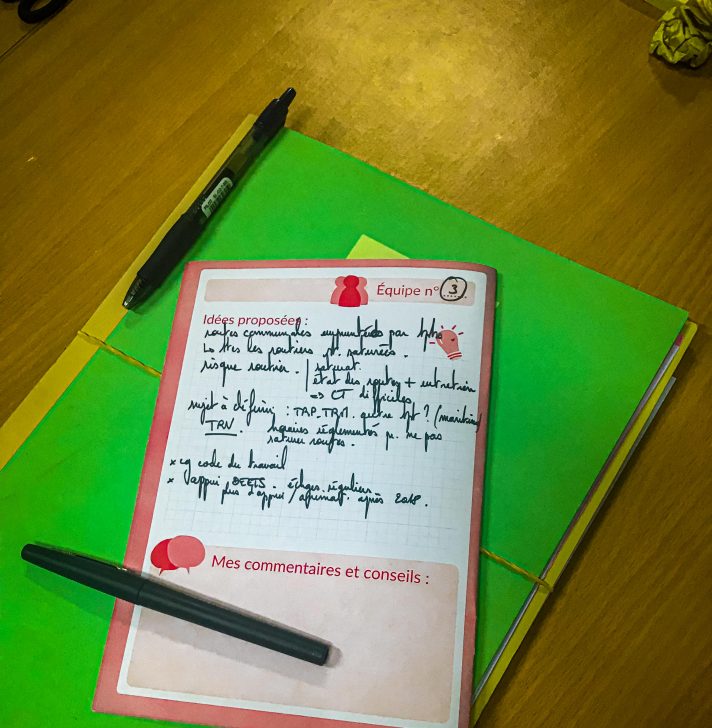 Équipe n° 3
Idées proposées :
routes communales empruntées par
les routiers st. saturées.
risque routier. saturat.
état des routes + entretien
=> CT difficiles
sujet à définir : TAP. TRM. autre tpt ? (maritime)
TRV horaires réglementés pr. ne pas
saturer routes.
x cg code du travail
x appui DEETS. échges réguliers
plus d'appui / après 2018.
Mes commentaires et conseils :